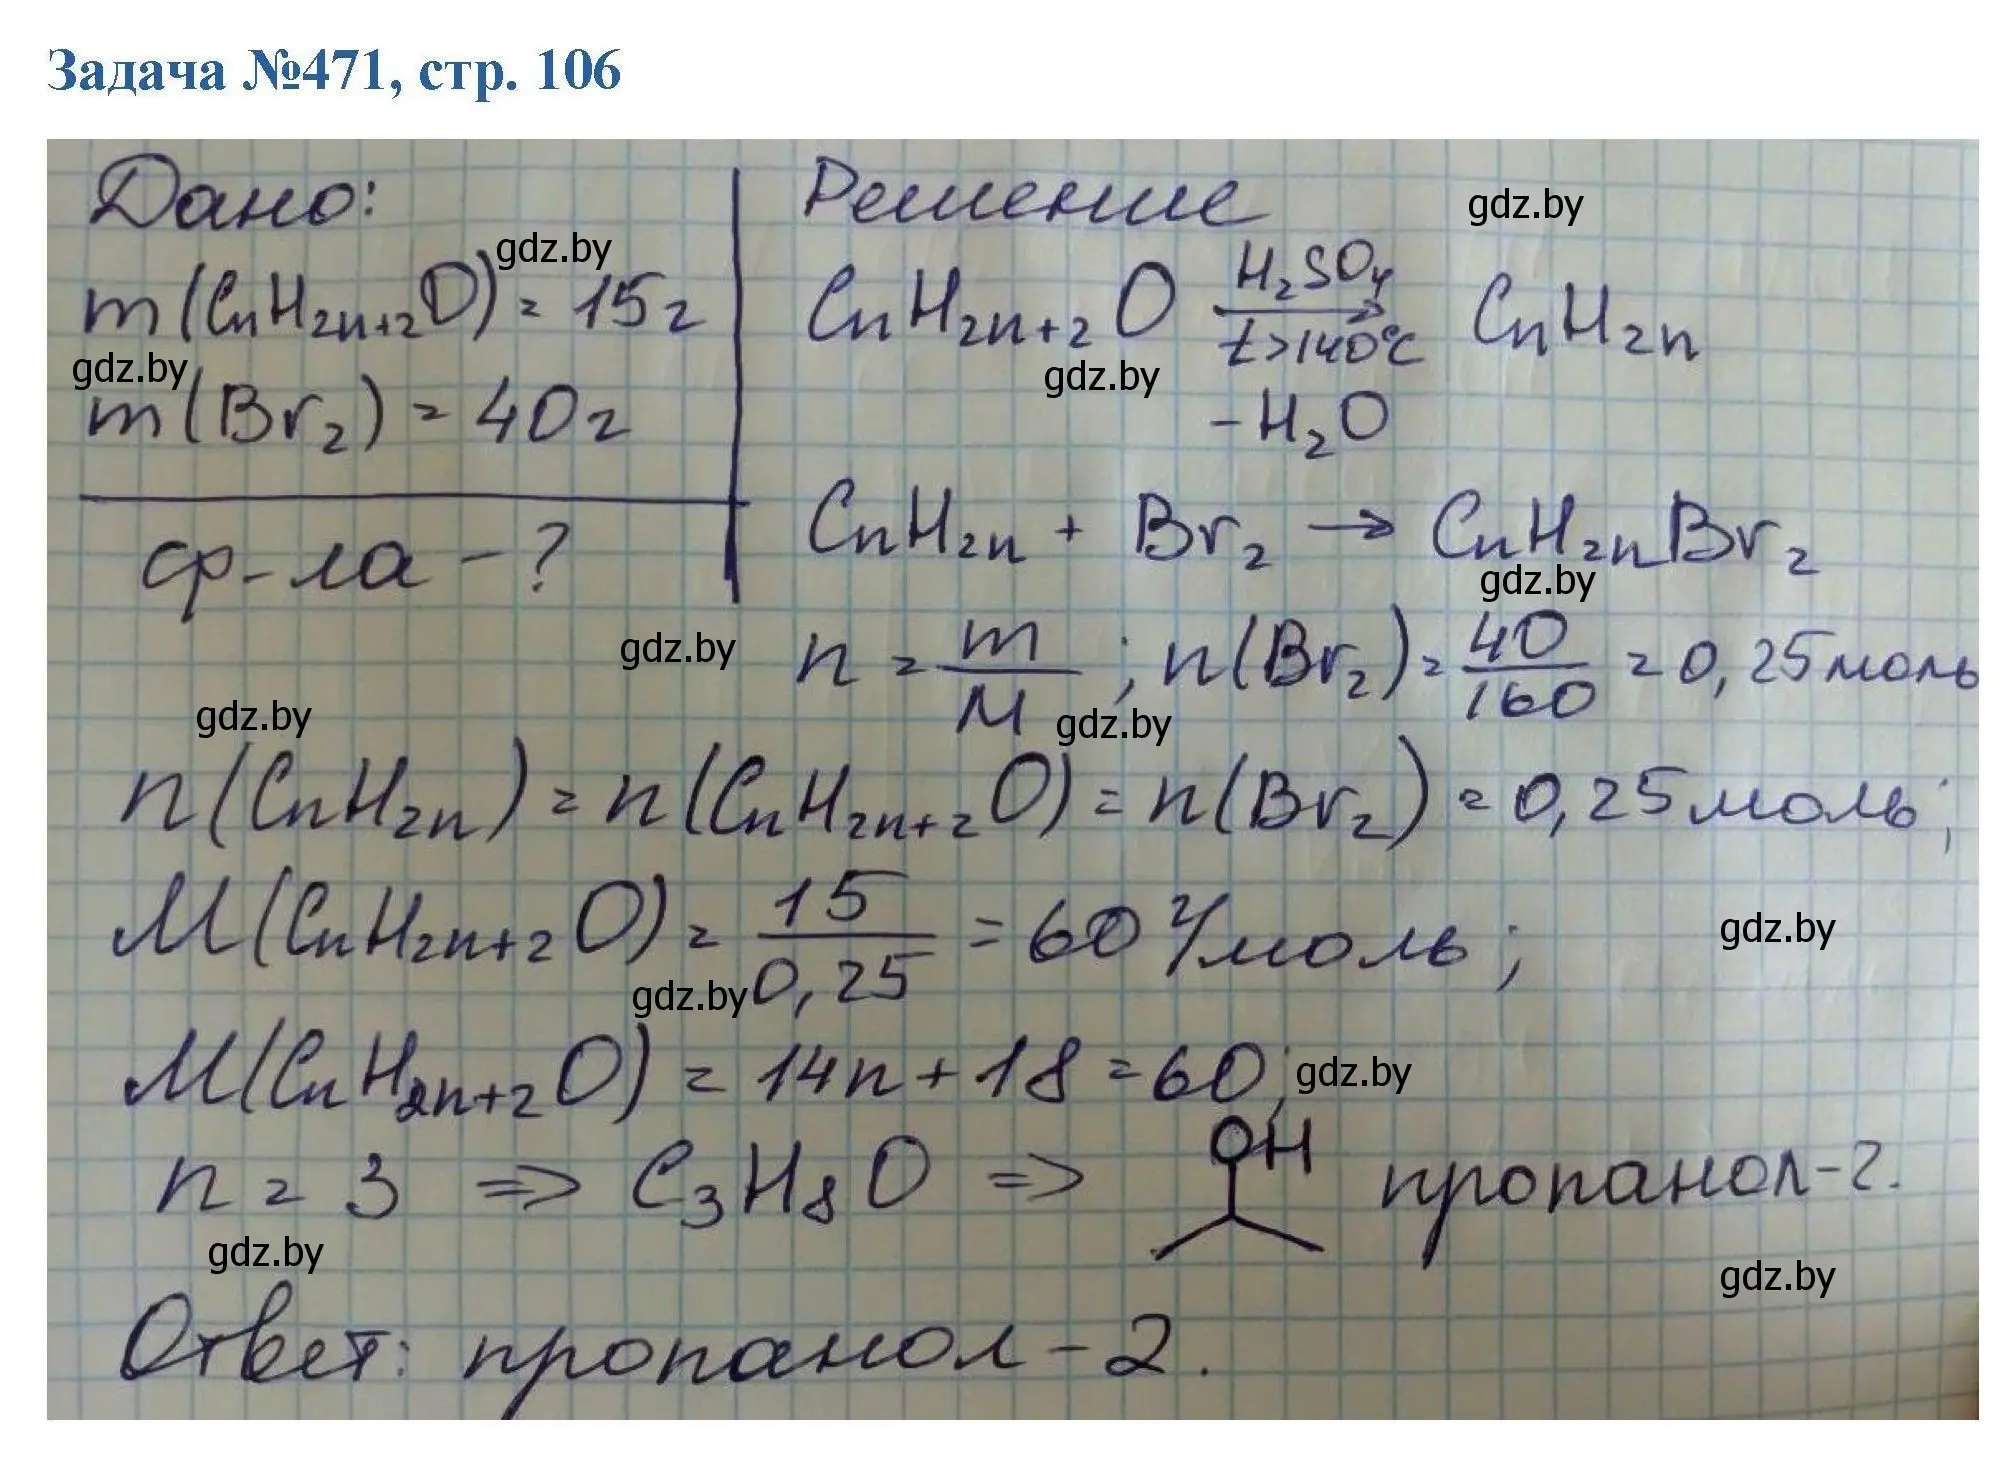 Задача №471, стр. 106
Дано:
m(CnH2n+2O) = 15г
m(Br2) = 40г
ф-ла - ?
Решение
CnH2n+2O H2SO4 t>140°C → CnH2n
-H2O
CnH2n + Br2 → CnH2nBr2
n = m/M ; n(Br2) = 40/160 = 0,25моль
n(CnH2n) = n(CnH2n+2O) = n(Br2) = 0,25моль;
M(CnH2n+2O) = 15/0,25 = 60 г/моль;
M(CnH2n+2O) = 14n + 18 = 60;
n = 3 => C3H8O => OH пропанол-2.
Ответ: пропанол-2.
gdz.by
gdz.by
gdz.by
gdz.by
gdz.by
gdz.by
gdz.by
gdz.by
gdz.by
gdz.by
gdz.by
gdz.by
gdz.by